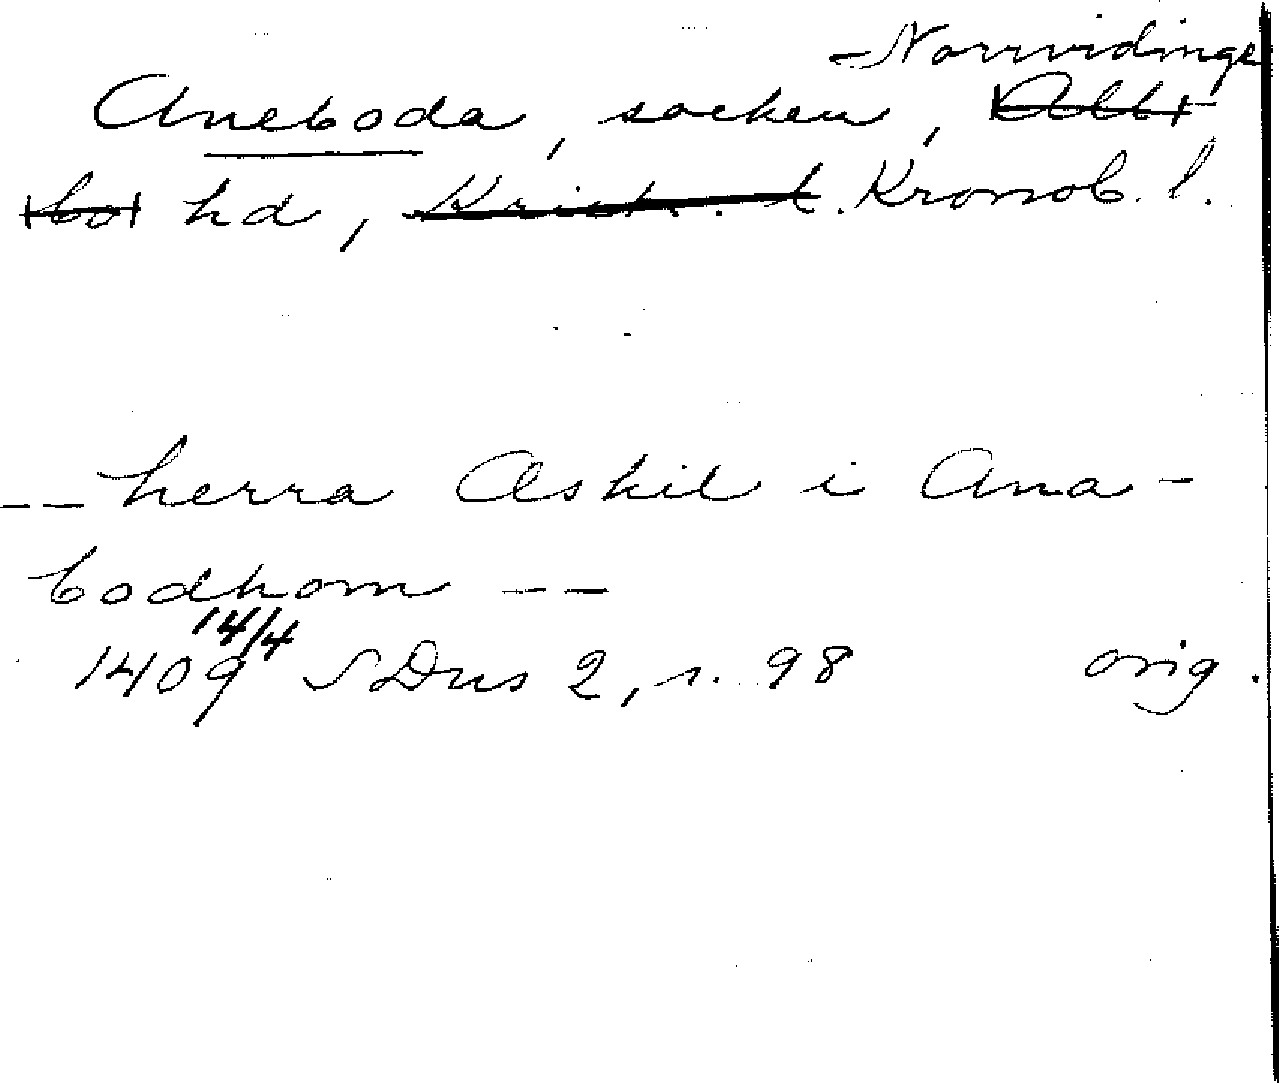 Norrvidinge
Aneboda, socken, Allbo
hd, Krist. l. Kronob. l.
-- herra Æskil i Ana-
bodhom --
14/4
1409 SDns 2, s. 98 orig.